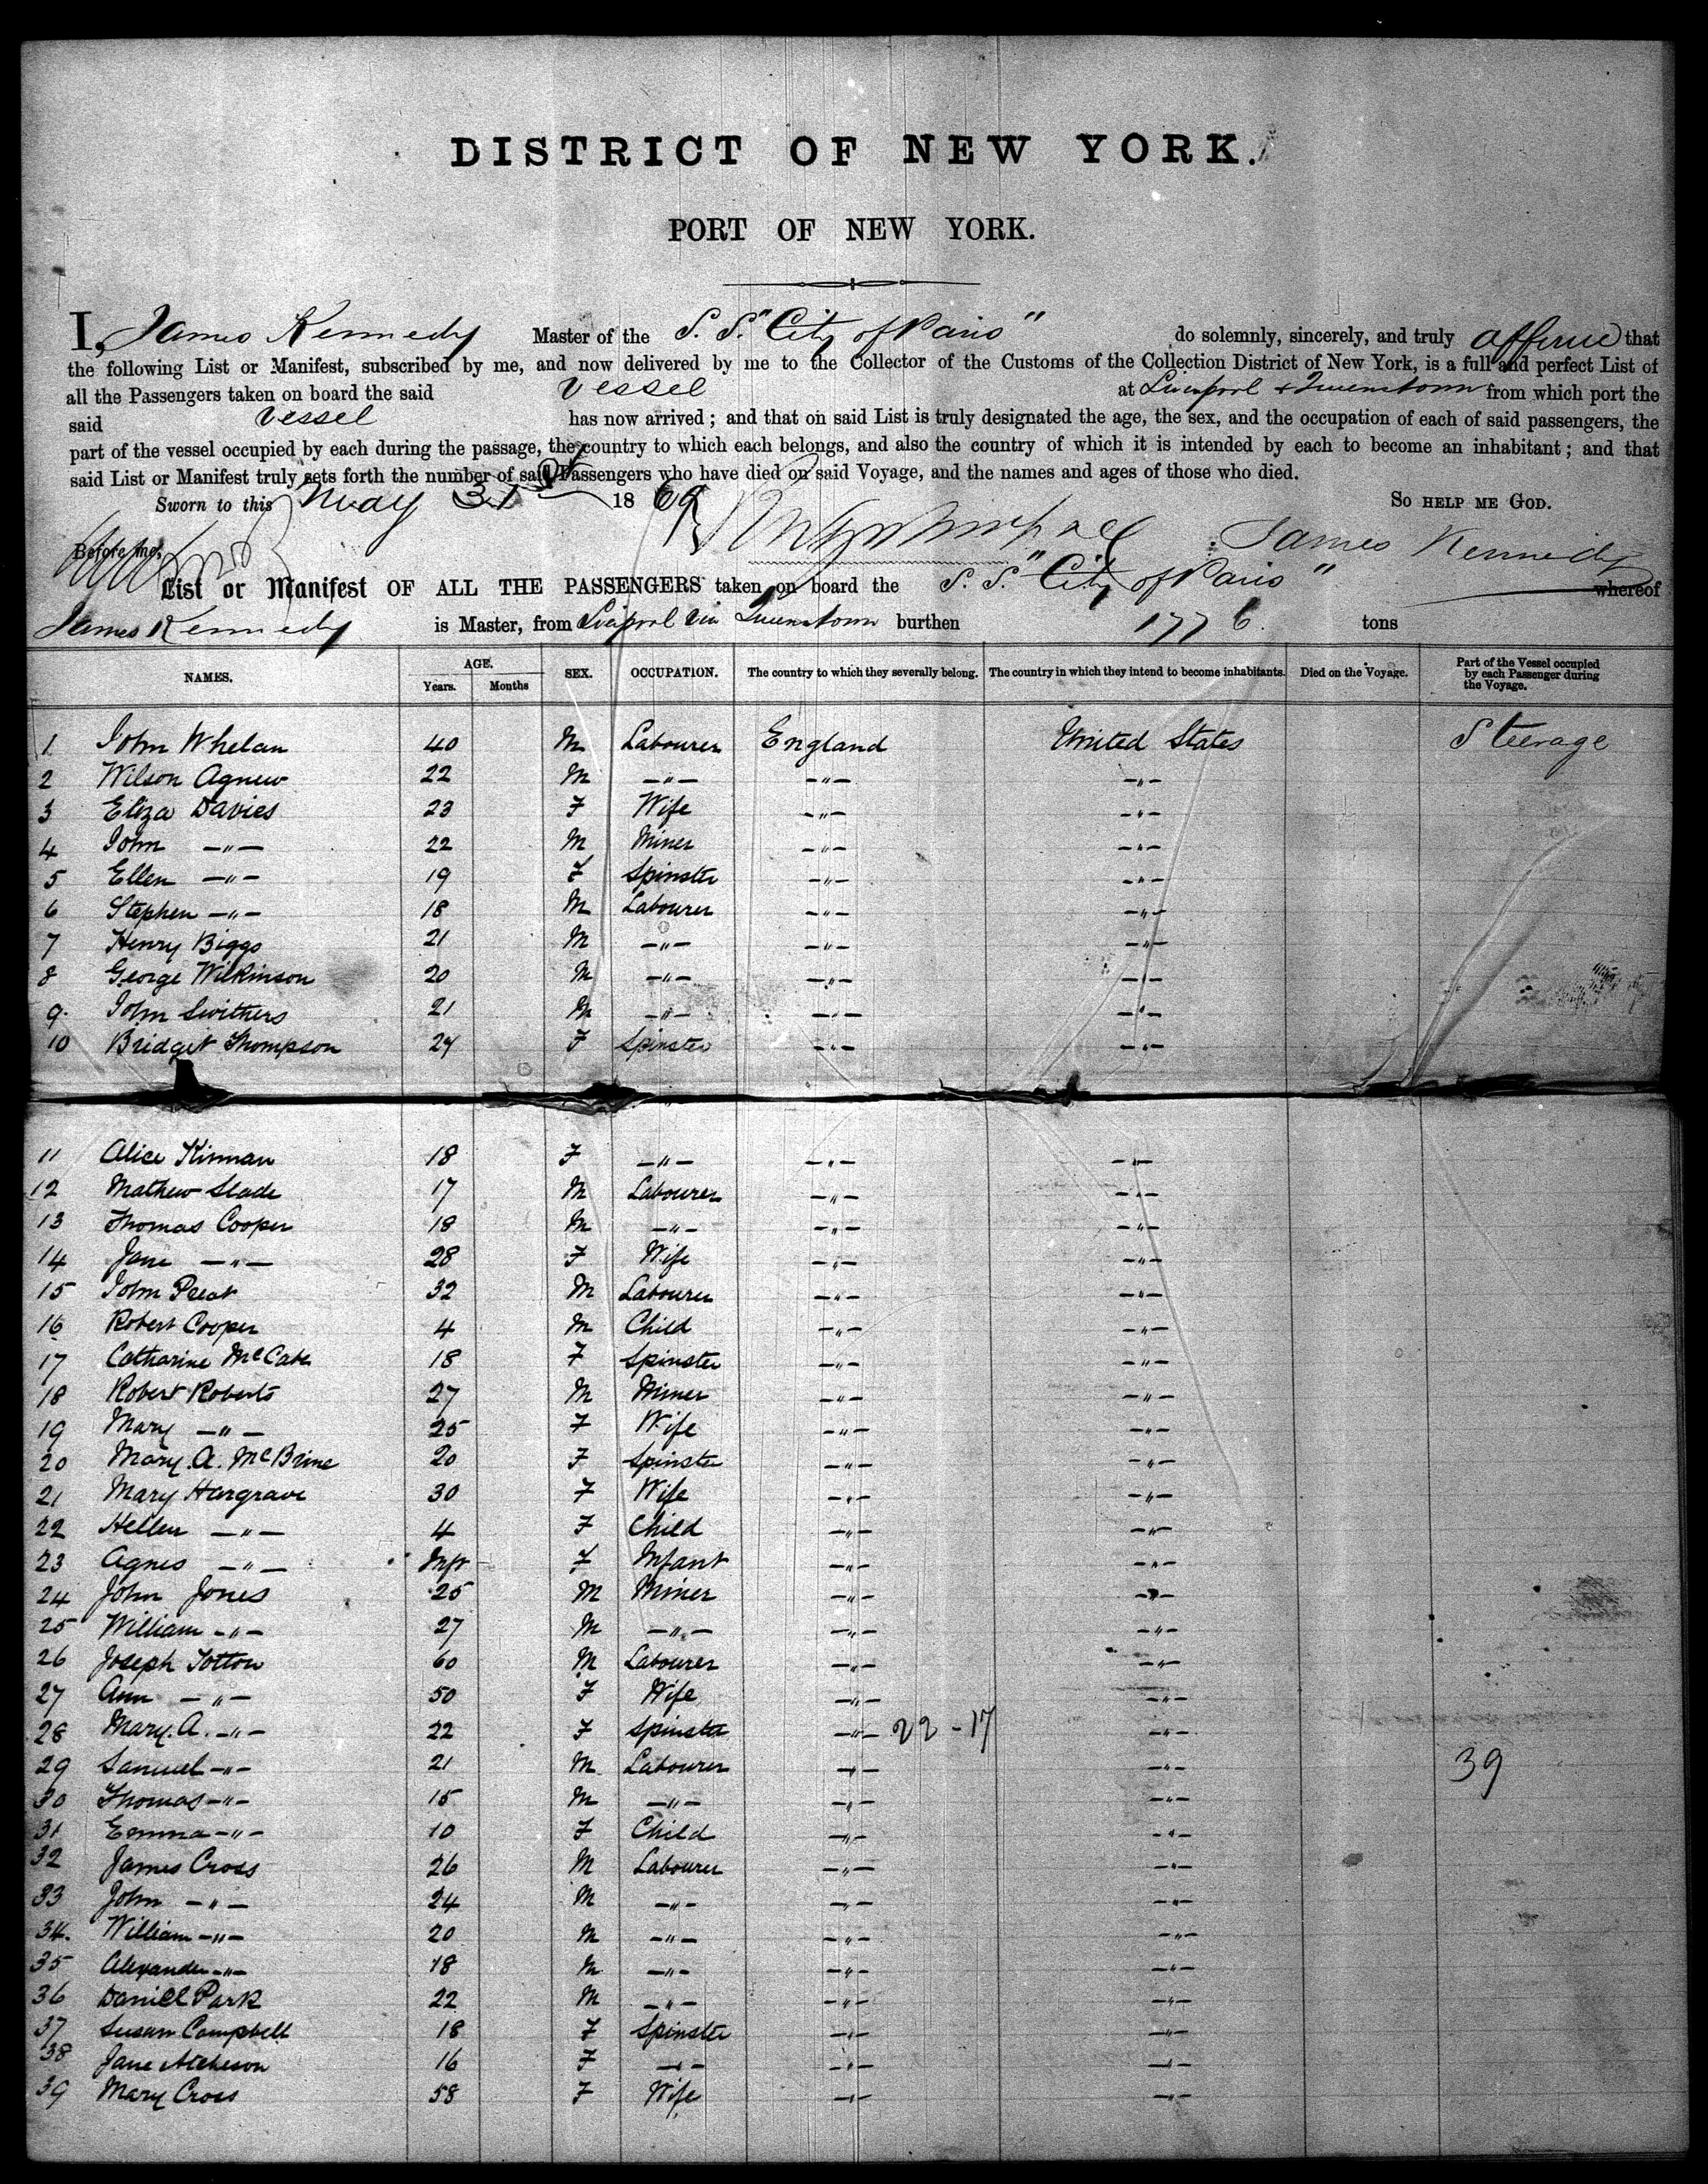 DISTRICT OF NEW YORK.
PORT OF NEW YORK.
I, James Kennedy Master of the S. S. "City of Paris" do solemnly, sincerely, and truly affirm that
the following List or Manifest, subscribed by me, and now delivered by me to the Collector of the Customs of the Collection District of New York, is a full and perfect List of
all the Passengers taken on board the said Vessel at Liverpool + Queenstown from which port the
said Vessel has now arrived; and that on said List is truly designated the age, the sex, and the occupation of each of said passengers, the
part of the vessel occupied by each during the passage, the country to which each belongs, and also the country of which it is intended by each to become an inhabitant; and that
said List or Manifest truly sets forth the number of said Passengers who have died on said Voyage, and the names and ages of those who died.
Sworn to this May 31st 1869 So help me God.
Before me, James Kennedy
List or Manifest OF ALL THE PASSENGERS taken on board the S. S. "City of Paris" whereof
James Kennedy is Master, from Liverpool via Queenstown burthen 1776 tons
NAMES. AGE. Years. Months SEX. OCCUPATION. The country to which they severally belong. The country in which they intend to become inhabitants. Died on the Voyage. Part of the Vessel occupied by each Passenger during the Voyage.
1 John Whelan 40 M Labourer England United States Steerage
2 Wilson Agnew 22 M -"- -"- -"-
3 Eliza Davies 23 F Wife -"- -"-
4 John -"- 22 M Miner -"- -"-
5 Ellen -"- 19 F Spinster -"- -"-
6 Stephen -"- 18 M Labourer -"- -"-
7 Henry Biggs 21 M -"- -"- -"-
8 George Wilkinson 20 M -"- -"- -"-
9. John Swithers 21 M -"- -"- -"-
10 Bridget Thompson 24 F Spinster -"- -"-
11 Alice Kirman 18 F -"- -"- -"-
12 Mathew Slade 17 M Labourer -"- -"-
13 Thomas Cooper 18 M -"- -"- -"-
14 Jane -"- 28 F Wife -"- -"-
15 John Peeat 32 M Labourer -"- -"-
16 Robert Cooper 4 M Child -"- -"-
17 Catharine McCabe 18 F Spinster -"- -"-
18 Robert Roberts 27 M Miner -"- -"-
19 Mary -"- 25 F Wife -"- -"-
20 Mary. A. McBrine 20 F Spinster -"- -"-
21 Mary Hargrave 30 F Wife -"- -"-
22 Hellen -"- 4 F Child -"- -"-
23 Agnes -"- Inft F Infant -"- -"-
24 John Jones 25 M Miner -"- -"-
25 William -"- 27 M -"- -"- -"-
26 Joseph Totton 60 M Labourer -"- -"-
27 Ann -"- 50 F Wife -"- -"-
28 Mary. A. -"- 22 F Spinster -"- 22-17 -"-
29 Samuel -"- 21 M Labourer -"- -"- 39
30 Thomas -"- 15 M -"- -"- -"-
31 Emma -"- 10 F Child -"- -"-
32 James Cross 26 M Labourer -"- -"-
33 John -"- 24 M -"- -"- -"-
34. William -"- 20 M -"- -"- -"-
35 Alexander -"- 18 M -"- -"- -"-
36 Daniel Park 22 M -"- -"- -"-
37 Susan Campbell 18 F Spinster -"- -"-
38 Jane Atcheson 16 F -"- -"- -"-
39 Mary Cross 58 F Wife -"- -"-